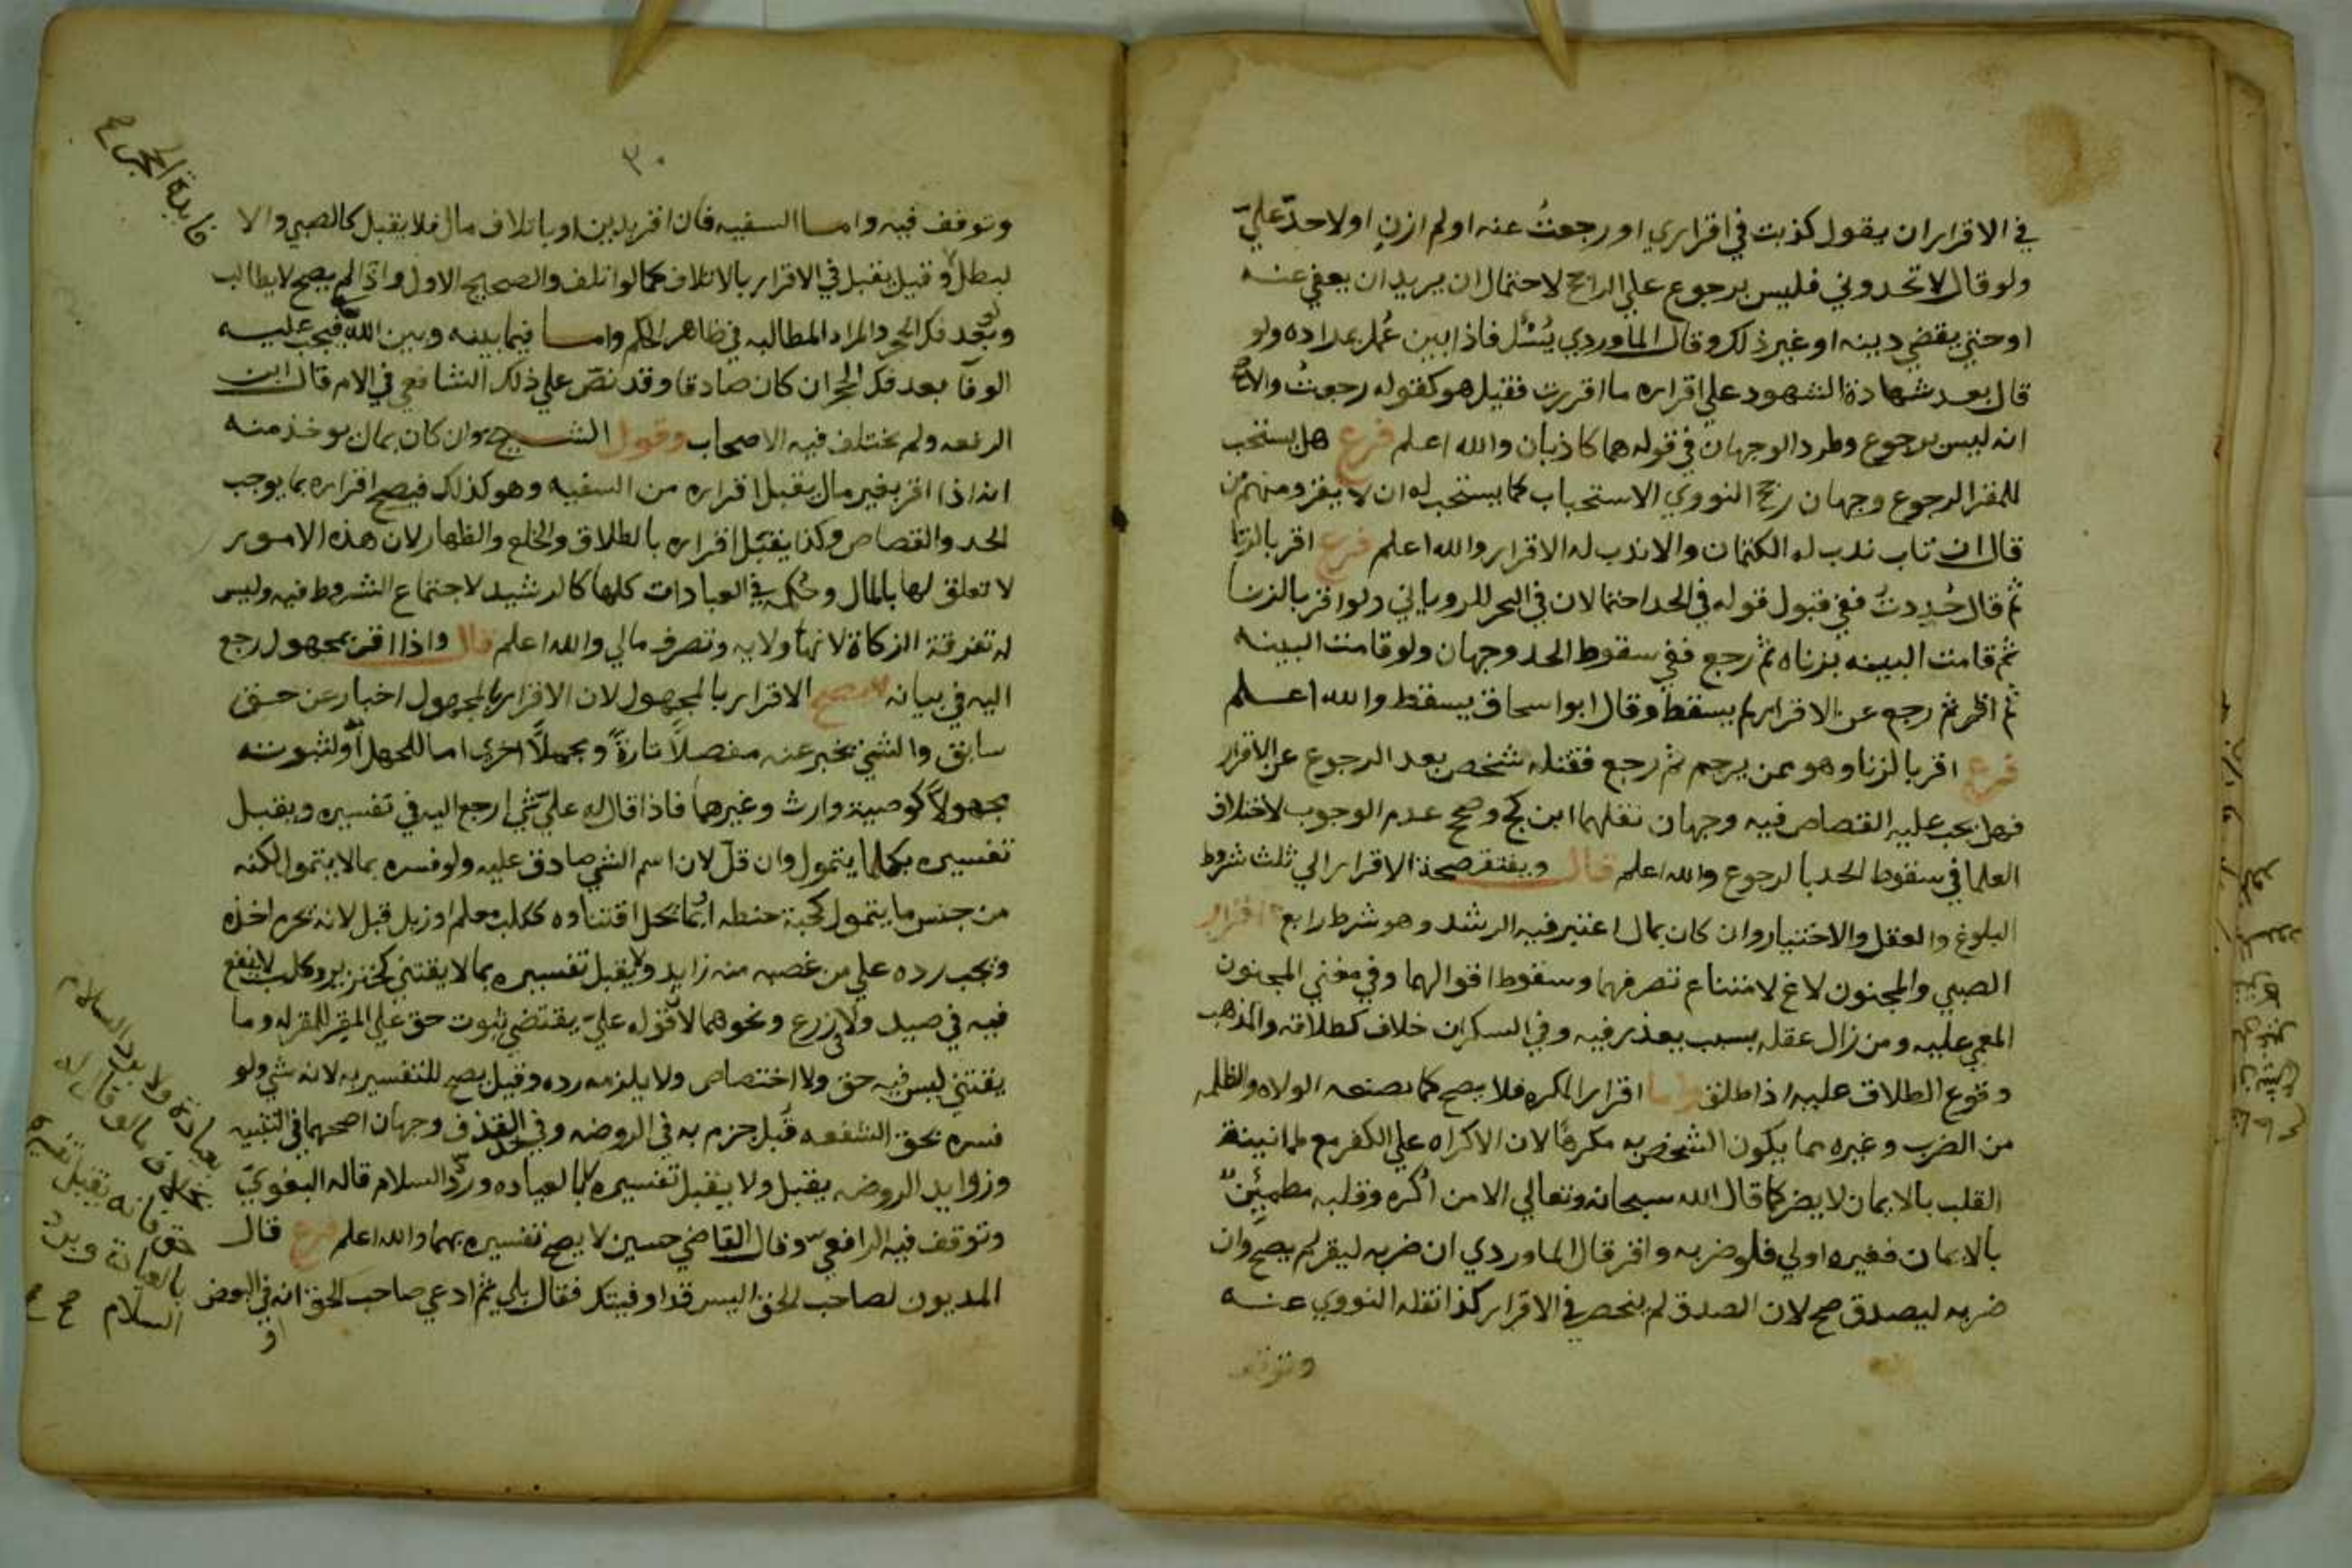 في الاقراران يقول كذبت في اقراري او رجعتُ عنه او لم ازنِ او لا حدّ عليّ
ولو قال لا تحدوني فليس برجوع علي الراجح لاحتمال ان يريد ان يعفي عنه
او حتي يقضي دينه او غير ذلك وقال الماوردي يُسْئل فاذا بين عُمل بمراده ولو
قال بعد شهادة الشهود علي اقراره ما اقررت فقيل هو كقوله رجعتُ والاصح
انه ليس برجوع وطرد الوجهان في قوله هما كاذبان والله اعلم فرع هل يستحب
للمقر الرجوع وجهان رجح النووي الاستحباب كما يستحب له ان لا يقر ومنهم من
قال ان تاب ندب له الكتمان والا ندب له الاقرار والله اعلم فرع اقر بالزنا
ثم قال حُدِدتُ ففي قبول قوله في الحد احتمالان في البحر للروياني ولو اقر بالزنا
ثم قامت البينه بزناه ثم رجع ففي سقوط الحد وجهان ولو قامت البينه
ثم اقر ثم رجع عن الاقرار لم يسقط وقال ابو اسحاق يسقط والله اعلم
فرع اقر بالزنا وهو ممن يرجم ثم رجع فقتله شخص بعد الرجوع عن الاقرار
فهل يجب عليه القصاص فيه وجهان نقلهما ابن كج وصحح عدم الوجوب لاختلاف
العلما في سقوط الحد بالرجوع والله اعلم قال ويفتقر صحة الاقرار الي ثلث شروط
البلوغ والعقل والاختيار وان كان بمال اعتبر فيه الرشد وهو شرط رابع اقرار
الصبي والمجنون لاغ لامتناع تصرفهما وسقوط اقوالهما وفي معني المجنون
المغمي عليه ومن زال عقله بسبب يعذر فيه وفي السكران خلاف كطلاقه والمذهب
وقوع الطلاق عليه اذا طلق واما اقرار المكره فلا يصح كما يصنعه الولاه والظلمه
من الضرب وغيره مما يكون الشخص به مكرهًا لان الاكراه علي الكفر مع طمانينة
القلب بالايمان لا يضر كما قال الله سبحانه وتعالي الا من اُكره وقلبه مطمئِنٌ
بالايمان فغيره اولي فلو ضربه واقر قال الماوردي ان ضربه ليقر لم يصح وان
ضربه ليصدق صح لان الصدق لم ينحصر في الاقرار كذا نقله النووي عنه
وتوقف
٣٠
وتوقف فيه واما السفيه فان اقر بدين او باتلاف مال فلا يقبل كالصبي والا
لبطل وقيل يقبل في الاقرار بالاتلاف كما لو اتلف والصحيح الاول واذا لم يصح لا يطالب
ولو بعد فك الحجر والمراد المطالبه في ظاهر الحكم واما فيما بينه وبين الله فيجب عليه
الوفآ بعد فك الحجر ان كان صادقا وقد نصّ علي ذلك الشافعي في الام قال ابن
الرفعه ولم يختلف فيه الاصحاب وقول الشيخ وان كان بمال يوخذ منه
انه اذا اقر بغير مال يقبل اقراره من السفيه وهو كذلك فيصح اقراره بما يوجب
الحد والقصاص وكذا يقبل اقراره بالطلاق والخلع والظهار لان هذه الامور
لا تعلق لها بالمال وحُكمه في العبادات كلها كالرشيد لاجتماع الشروط فيه وليس
له تفرقة الزكاة لانها ولايه وتصرف مالي والله اعلم قال واذا اقر بمجهول رجع
اليه في بيانه يصح الاقرار بالمجهول لان الاقرار بالمجهول اخبار عن حق
سابق والشي يخبر عنه مفصلاً تارةً ومجملاً اخري اما للجهل او لثبوته
مجهولاً كوصية وارث وغيرها فاذا قال له عليّ شي رجع اليه في تفسيره ويقبل
تفسيره بكلما يتمول وان قلّ لان اسم الشي صادق عليه ولو فسره بما لا يتمول لكنه
من جنس ما يتمول كحبة حنطه او بما يحل اقتناوه ككلب معلم او زبل قبل لانه يحرم اخذه
ويجب رده علي من غصبه منه زايد ولا يقبل تفسيره بما لا يقتني كخنزير وكلب لا نفع
فيه في صيد ولا زرع ونحوهما لان قوله عليّ يقتضي ثبوت حق علي المقر للمقر له وما
يقتني ليس فيه حق ولا اختصاص ولا يلزمه رده وقيل يصح التفسير به لانه شي ولو
فسره بحق الشفعه قُبل جزم به في الروضه وفي حد القذف وجهان اصحهما في التنبيه
وزوايد الروضه يقبل ولا يقبل تفسيره بالعياده وردّ السلام قاله البغوي
وتوقف فيه الرافعي وقال القاضي حسين لا يصح تفسيره بهما والله اعلم فرع قال
المديون لصاحب الحق اليس قد اوفيتك فقال بلي ثم ادعي صاحب الحق انه في البعض
او
بعيادة ولا برد السلام
بخلاف ما لو قال له
حق فانه يقبل تفسيره
بالعيادة وبرد
السلام صح